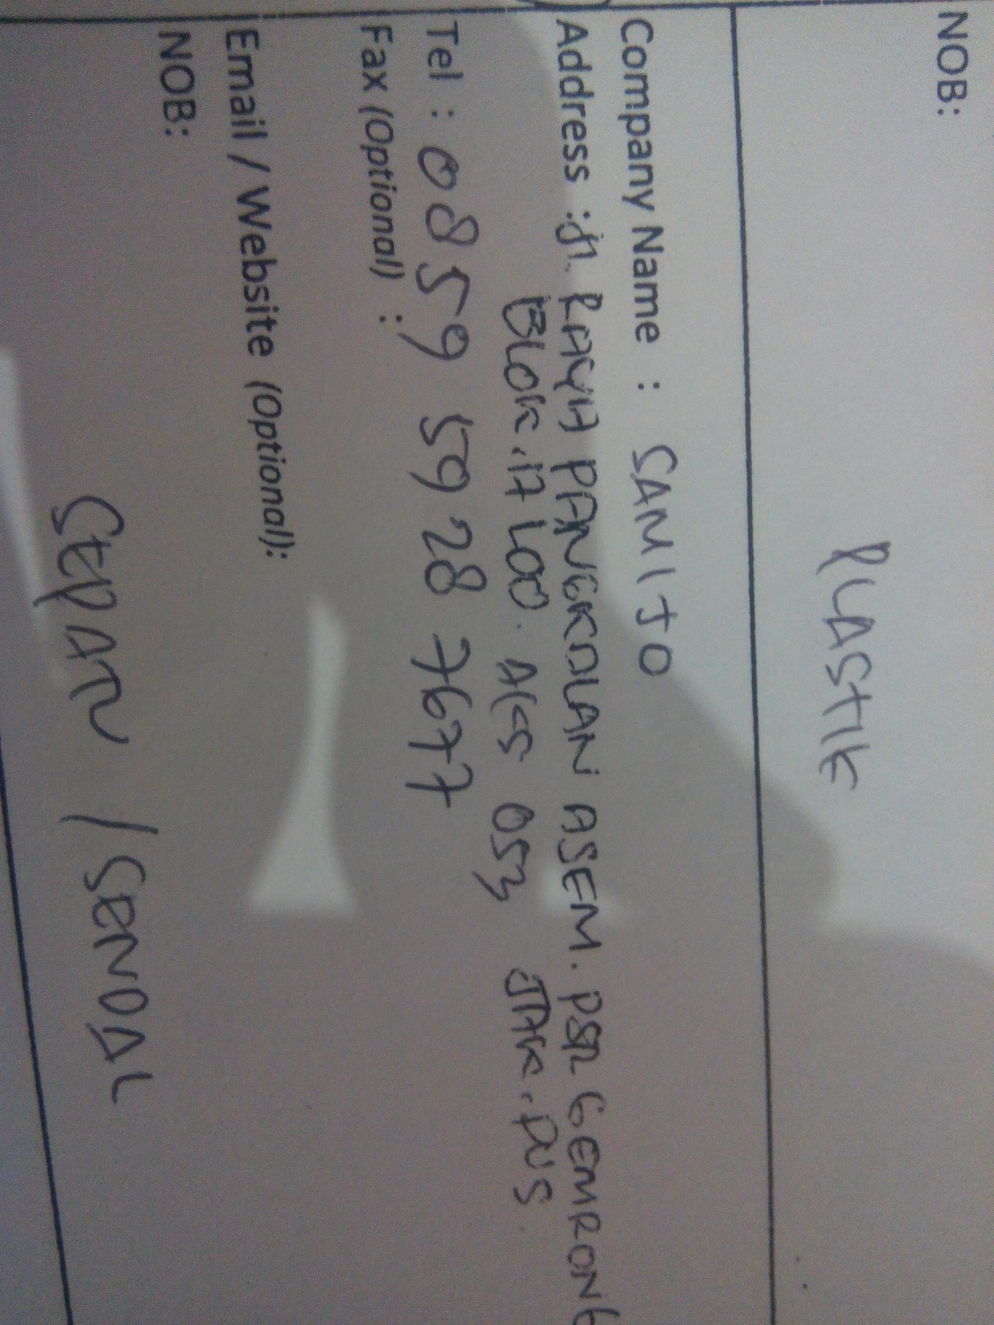 NOB:
PLASTIK
Company Name : SAMIJO
Address : Jl. RAYA PANGKOLAN ASEM. PSR GEMRONG
BLOK. A LOO. AKS 053 JAK. PUS.
Tel : 0859 5928 7677
Fax (Optional) :
Email / Website (Optional):
NOB:
SEPATU / SENDAL